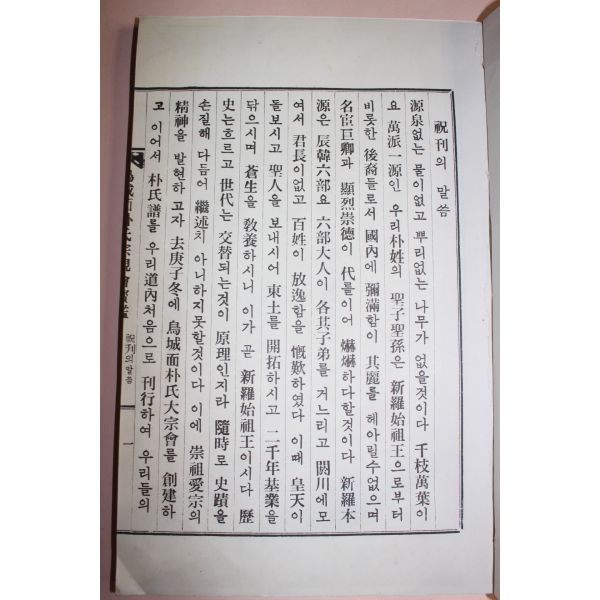 祝刊의 말씀
源泉없는 물이없고 뿌리없는 나무가 없을것이다 千枝萬葉이
요 萬派一源인 우리朴姓의 聖子聖孫은 新羅始祖王으로부터
비롯한 後裔들로서 國內에 彌滿함이 其麗를 헤아릴수없으며
名宦巨卿과 顯烈崇德이 代를이어 爀爀하다할것이다 新羅本
源은 辰韓六部요 六部大人이 各其子弟를 거느리고 閼川에모
여서 君長이없고 百姓이 放逸함을 慨歎하였다 이때 皇天이
돌보시고 聖人을 보내시어 東土를 開拓하시고 二千年基業을
닦으시며 蒼生을 敎養하시니 이가 곧 新羅始祖王이시다 歷
史는흐르고 世代는 交替되는것이 原理인지라 隨時로 史蹟을
손질해 다듬어 繼述치 아니하지못할것이다 이에 崇祖愛宗의
精神을 발현하고자 去庚子冬에 鳥城面朴氏大宗會를 創建하
고 이어서 朴氏譜를 우리道內처음으로 刊行하여 우리들의
鳥城面朴氏宗親會 祝刊의말씀 一